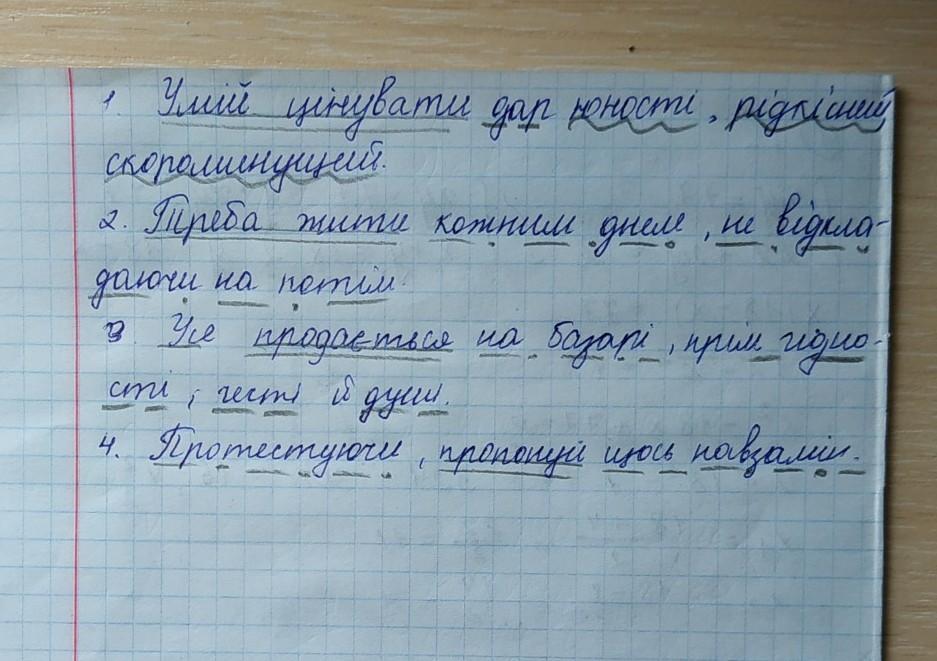 1. Умій цінувати дар юності, рідкісний,
скороминущий.
2. Треба жити кожним днем, не відкла-
даючи на потім.
3. Усе продається на базарі, крім гідно-
сті, честі й душі.
4. Протестуючи, пропонуй щось навзамін.